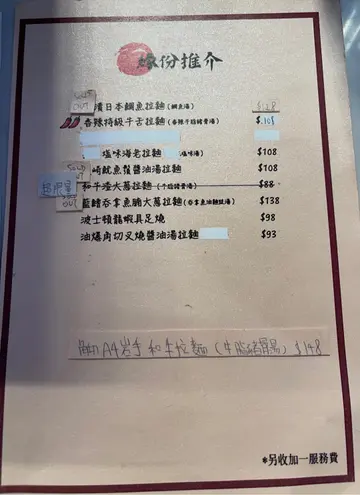 緣份推介
SOLD OUT
漬日本鯛魚拉麵(鯛魚湯) $128
香辣特級牛舌拉麵(香辣牛骹豬骨湯) $108
塩味海老拉麵 塩味湯) $108
SOLD OUT
崎魷魚舊醬油湯拉麵 $108
和牛渣大蔥拉麵(牛骹豬骨湯) $88
藍鰭吞拿魚腩大蔥拉麵(吞拿魚油麵豉湯) $138
波士頓龍蝦具足燒 $98
油爆角切叉燒醬油湯拉麵 $93
A4岩手和牛拉麵(牛骹豬骨湯) $148
*另收加一服務費